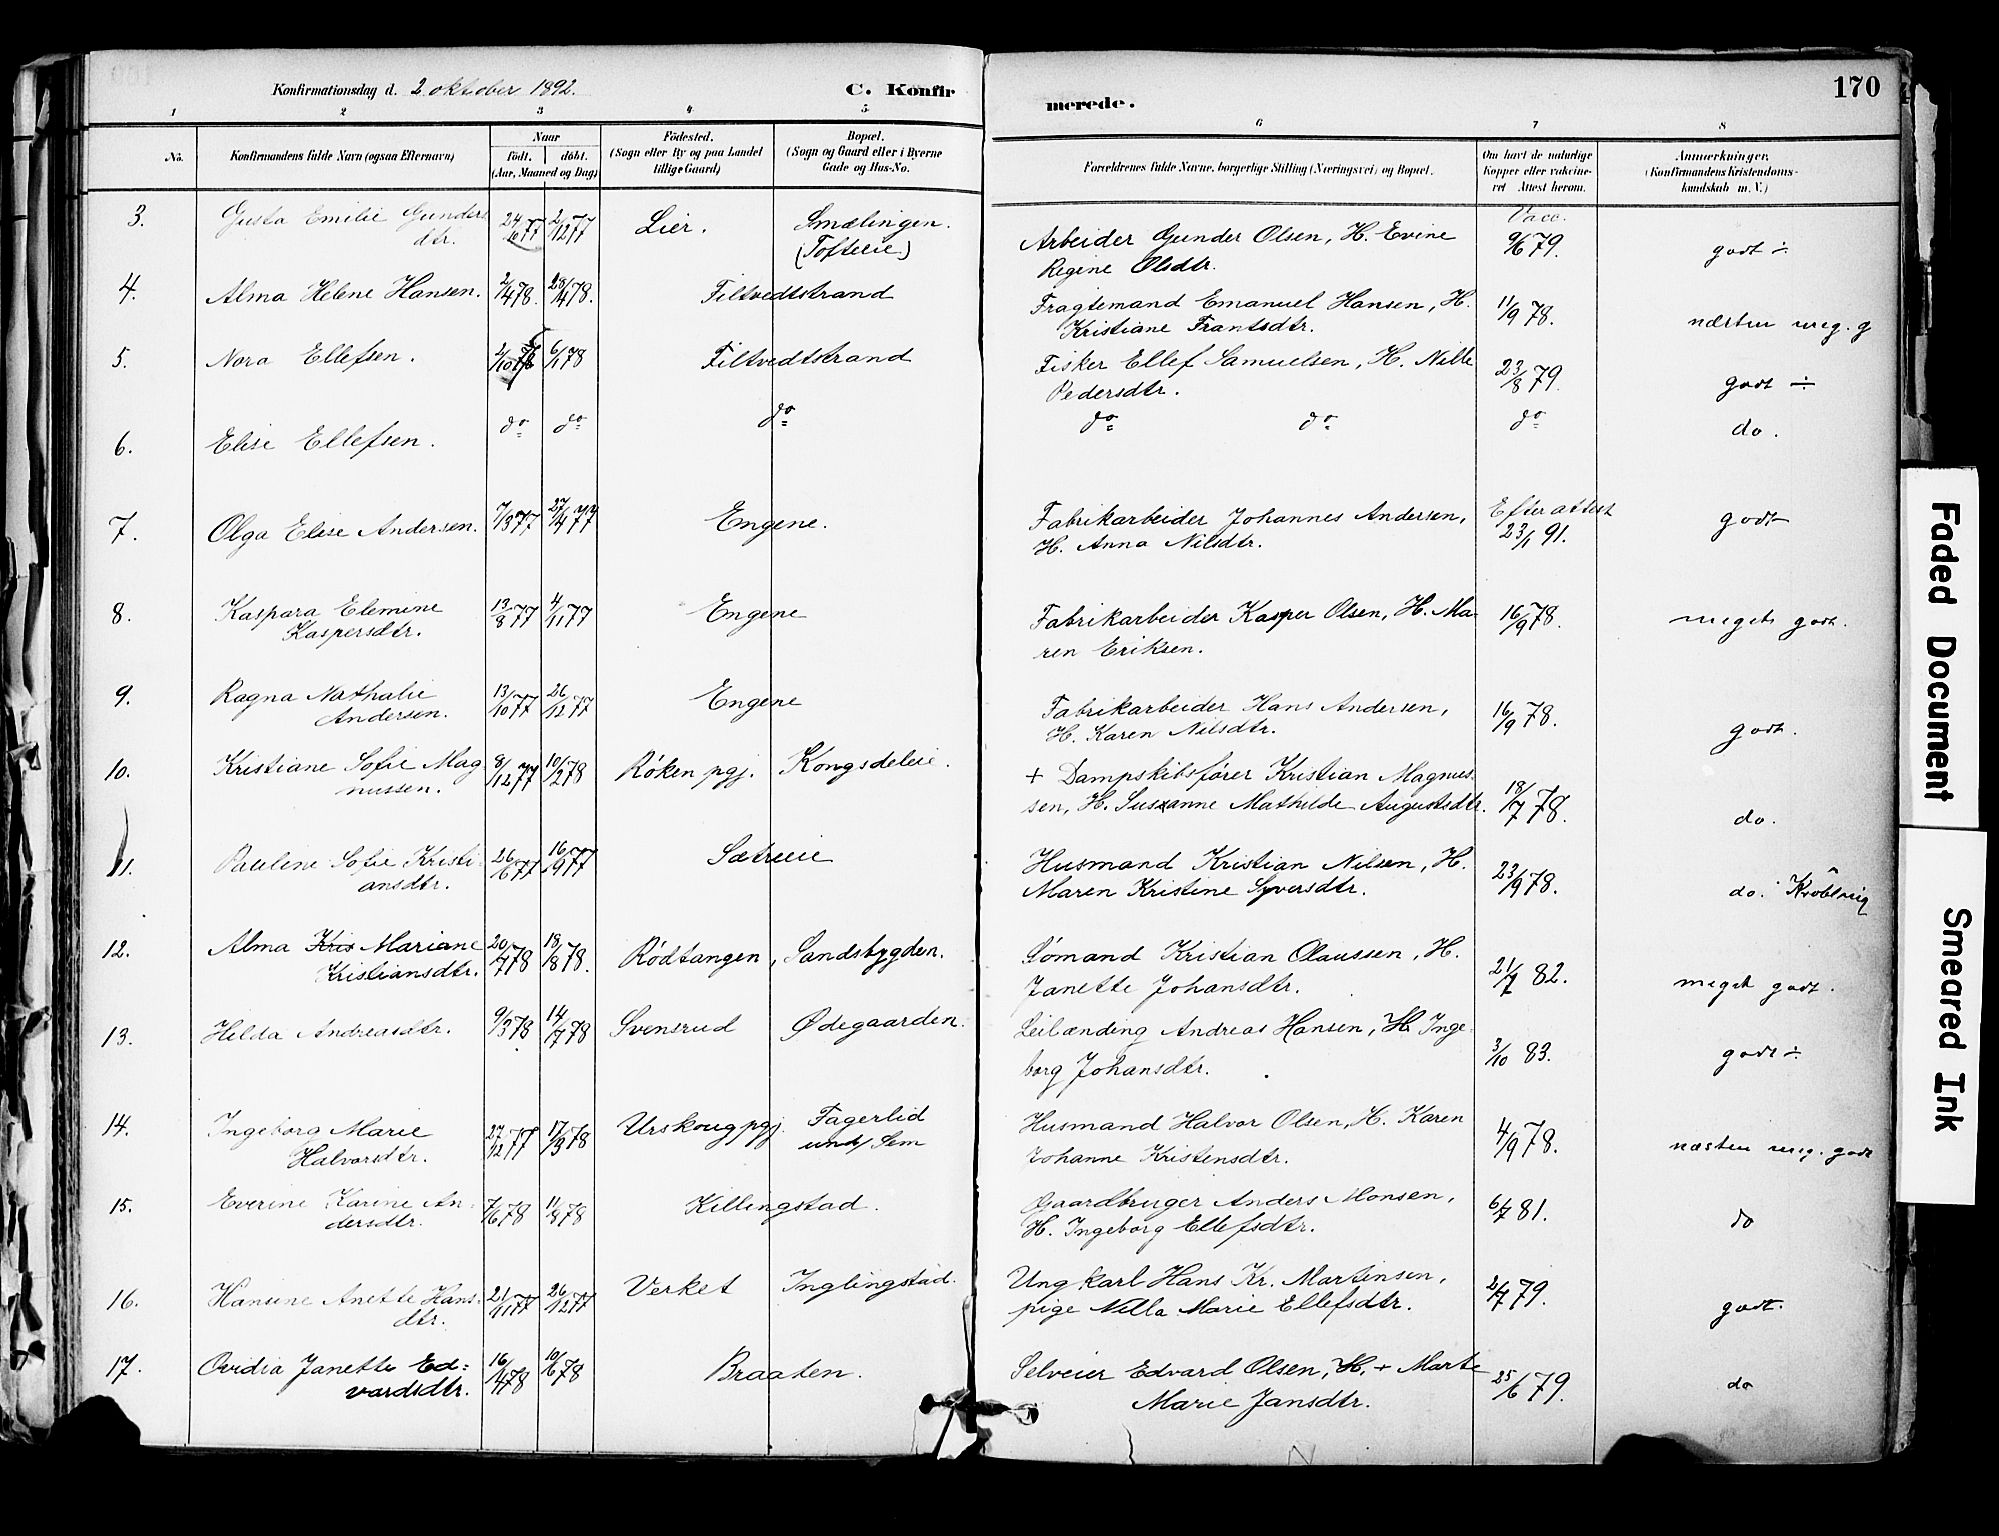 Konfirmationsdag d. 2 oktober 1892. C. Konfir merede. 170
1 2 3 4 5 6 7 8
No. Konfirmandens fulde Navn (ogsaa Efternavn)
Naar födt. döbt. (Aar, Maaned og Dag)
Födested. (Sogn eller By og paa Landet tillige Gaard)
Bopæl. (Sogn og Gaard eller i Byerne Gade og Hus-No.
Forældrenes fulde Navne, borgerlige Stilling (Næringsvei) og Bopæl.
Om havt de naturlige Kopper eller vakcineret Attest herom.
Anmærkninger. (Konfirmandens Kristendomskundskab m. V.)
3. Gusta Emilie Gunders 24/10 77 2/12 77 Lier. Smælingen. Arbeider Gunder Olsen, H. Evine Vacc. 9/6 79. godt ÷
dtr. (Tofteeie) Regine Olsdtr.
4. Alma Helene Hansen. 2/4 78. 28/4 78. Filtvedtstrand Fragtemand Emanuel Hansen, H. 11/9 78. næsten meg. g
Kristiane Frantsdtr.
5. Nora Ellefsen. 6/1 78 Filtvedtstrand Fisker Ellef Samuelsen, H. Nille 23/8 79. godt ÷
Pedersdtr.
6. Elise Ellefsen. do do do do do do do.
7. Olga Elise Andersen. 7/3 77 27/4 77 Engene. Fabrikarbeider Johannes Andersen, Efter attest godt
H. Anna Nilsdtr. 23/1 91.
8. Kaspara Elemine 13/8 77 4/11 77 Engene Fabrikarbeider Kasper Olsen, H. Ma- 16/9 78. meget godt.
Kaspersdtr. ren Eriksen.
9. Ragna Nathalie 13/10 77 26/12 77 Engene Fabrikarbeider Hans Andersen, 16/9 78. godt.
Andersen. H. Karen Nilsdtr.
10. Kristiane Sofie Mag 8/12 77 10/2 78 Røken pgj. Kongsdeleie. + Dampskibsfører Kristian Magnus-
nussen. sen, H. Susanne Mathilde Augustsdtr. 18/7 78. do.
11. Pauline Sofie Kristi- 26/6 77 16/9 77 Sætreeie Husmand Kristian Nilsen, H. 23/9 78.
ansdtr. Maren Kristine Syversdtr. do.
12. Alma Kris Mariane 20/7 78 18/8 78. Rödtangen, Sandsbygden. Sømand Kristian Olaussen, H. 21/7 82. meget godt.
Kristiansdtr. Janette Johansdtr.
13. Hilda Andreasdtr. 9/3 78 14/7 78 Svensrud Ødegaarden. Leilænding Andreas Hansen, H. Inge- 3/10 83. godt ÷
borg Johansdtr.
14. Ingeborg Marie 27/12 77 17/3 78 Urskoug pgj. Fagerlid Husmand Halvor Olsen, H. Karen 4/9 78. næsten meg. godt
Halvorsdtr. und/ Sem Johanne Kristensdtr.
15. Everine Karine An- 7/6 78 11/8 78 Killingstad. Gaardbruger Anders Monsen, 6/7 81. do
dersdtr. H. Ingeborg Ellefsdtr.
16. Hansine Anette Hans- 21/11 77 26/12 77 Verket Inglingstad. Ungkarl Hans Kr. Martinsen, 2/7 79. godt.
dtr. pige Nilla Marie Ellefsdtr.
17. Ovidia Janette Ed= 16/4 78 10/6 78 Braaten. Selveier Edvard Olsen, H. + Marte 25/6 79. do
vardsdtr. Marie Jansdtr.
Faded Document
Smeared Ink